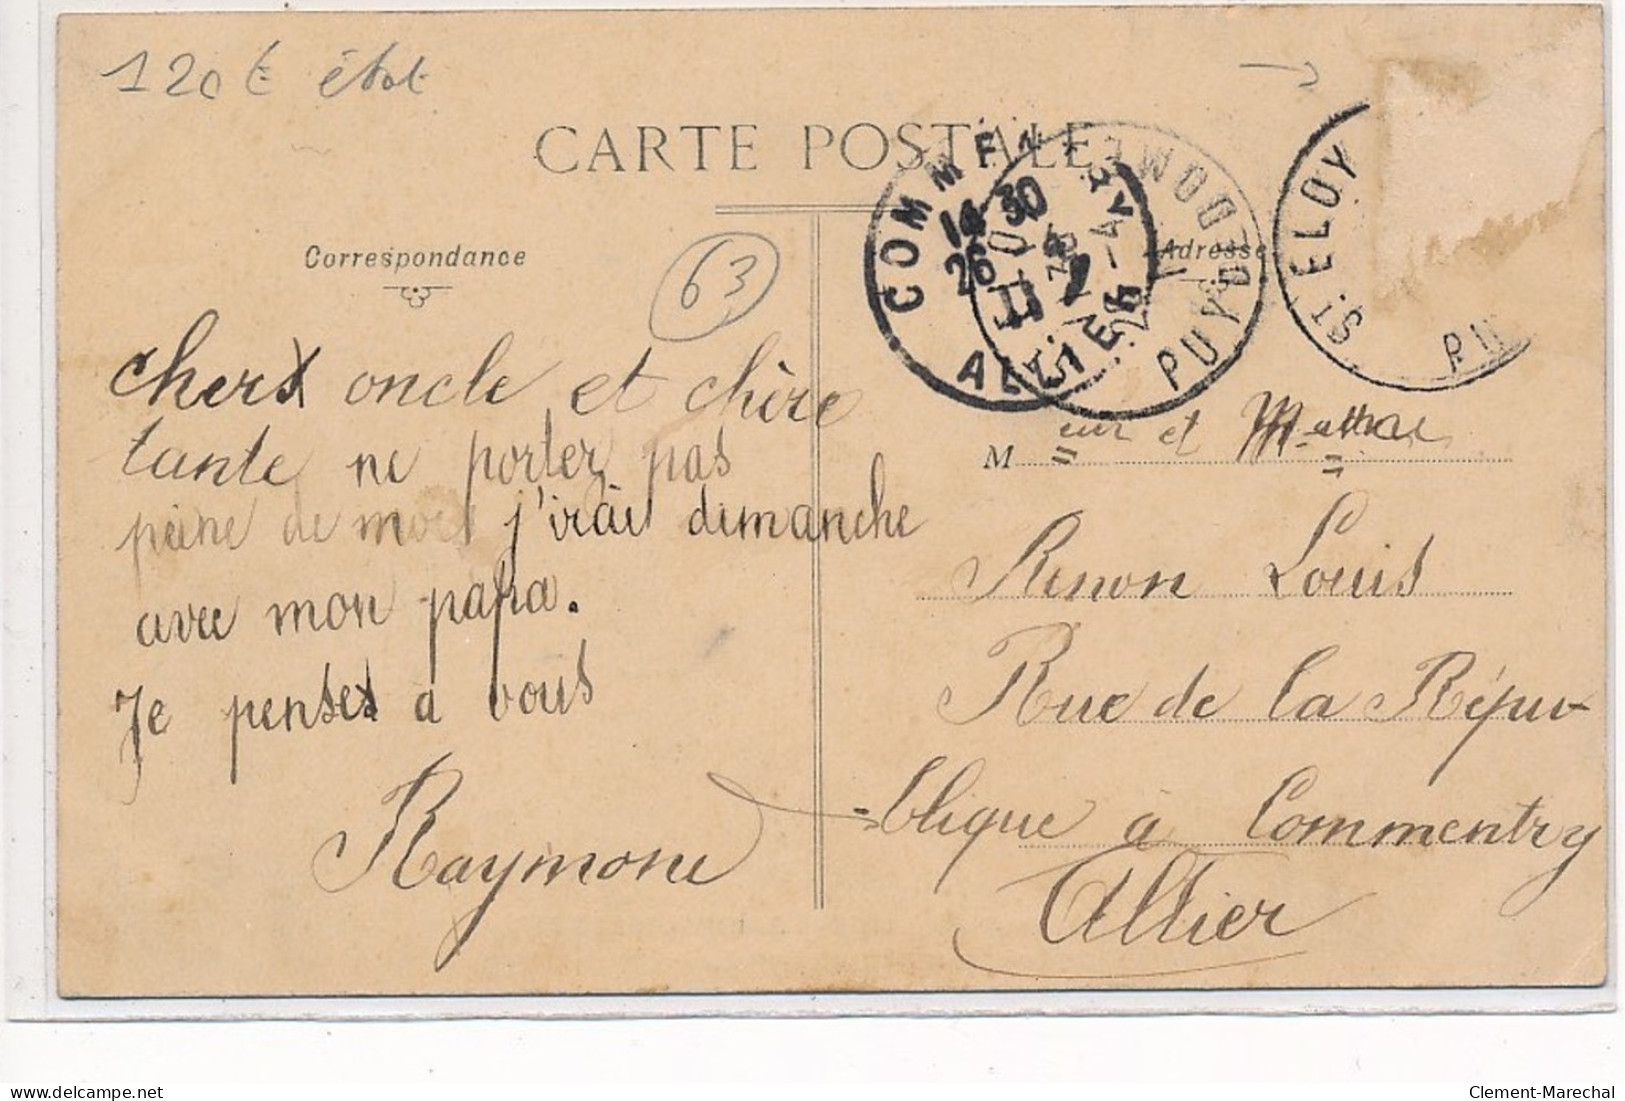 120 € état
CARTE POSTALE
Correspondance
Adresse
63
COMMENTRY
14 30
26 - 4
ALLIER
PUY-DE-DOME
ST ELOY
PU
cherx oncle et chère
tante ne porter pas
peine de moi j'irai dimanche
avec mon papa.
Je pense à vous
Raymone
M eur et M
Renon Louis
Rue de la Répu-
-blique à Commentry
Allier
delcampe.net
Clement-Marechal